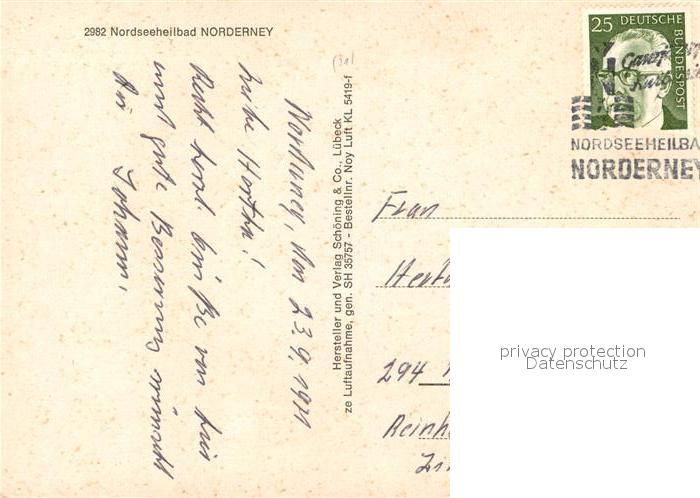 2982 Nordseeheilbad NORDERNEY
Norderney, den 23.9.1971
Liebe Hertha!
Recht herzl. Grüße von hier
und gute Besserung wünscht
Dir Johann.
Hersteller und Verlag Schöning & Co., Lübeck
ze Luftaufnahme, gen. SH 35757 - Bestellnr. Noy Luft KL 5419-f
25 DEUTSCHE BUNDESPOST
NORDSEEHEILBA
NORDERNEY
Frau
Hert
294
Reinh
privacy protection
Datenschutz